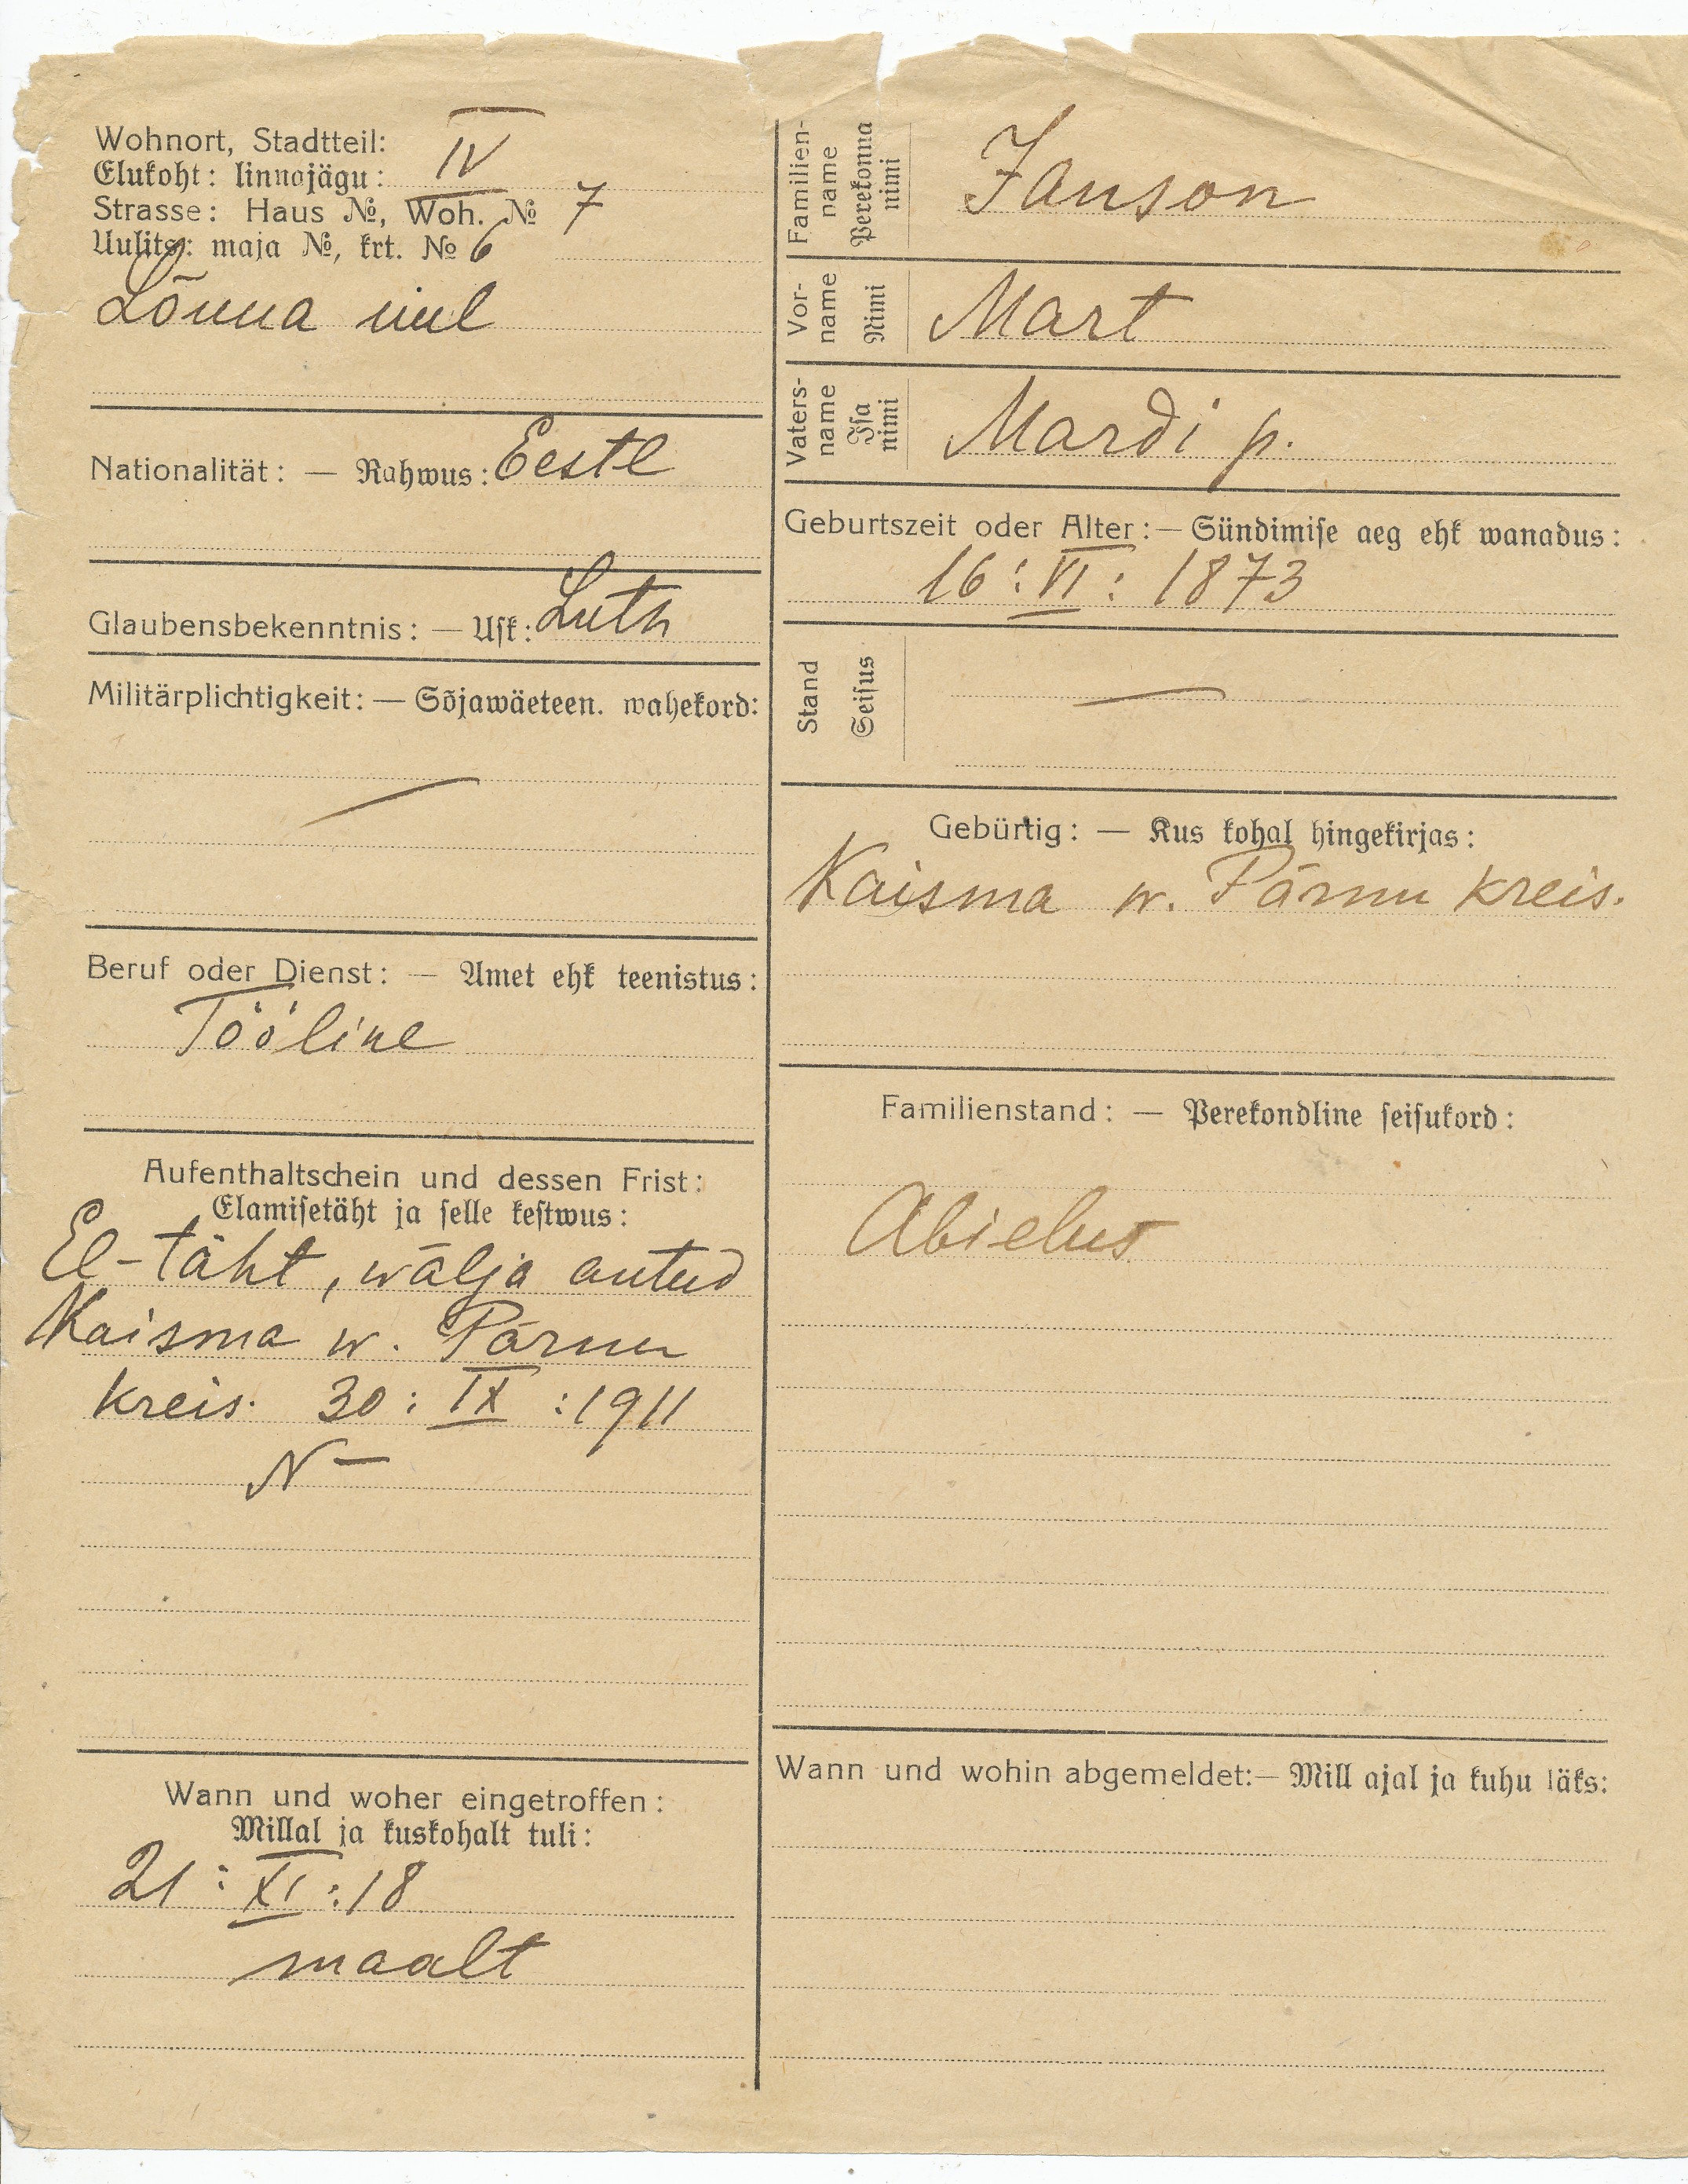 Wohnort, Stadtteil: IV
Elukoht: linnajägu:
Strasse: Haus №, Woh. № 7
Uulits: maja №, krt. № 6
Lõuna uul
Nationalität: — Rahwus: Eestl
Glaubensbekenntnis: — Usk: Luth
Militärplichtigkeit: — Sõjawäeteen. wahekord:
—
Beruf oder Dienst: — Amet ehk teenistus:
Tööline
Aufenthaltschein und dessen Frist:
Elamisetäht ja selle kestwus:
El-täht, wälja antud
Kaisma w. Pärnu
kreis. 30: IX :1911
N —
Wann und woher eingetroffen:
Millal ja kuskohalt tuli:
21: XI :18
maalt
Familien-
name
Perekonna
nimi
Janson
Vor-
name
Nimi
Mart
Vaters-
name
Isa
nimi
Mardi p.
Geburtszeit oder Alter: — Sündimise aeg ehk wanadus:
16: VI: 1873
Stand
Seisus
—
Gebürtig: — Kus kohal hingekirjas:
Kaisma w. Pärnu kreis.
Familienstand: — Perekondline seisukord:
Abielus
Wann und wohin abgemeldet: — Mill ajal ja kuhu läks: